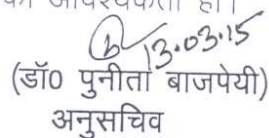 की आवश्यकता हो।
13.03.15
(डॉ0 पुनीता बाजपेयी)
अनुसचिव